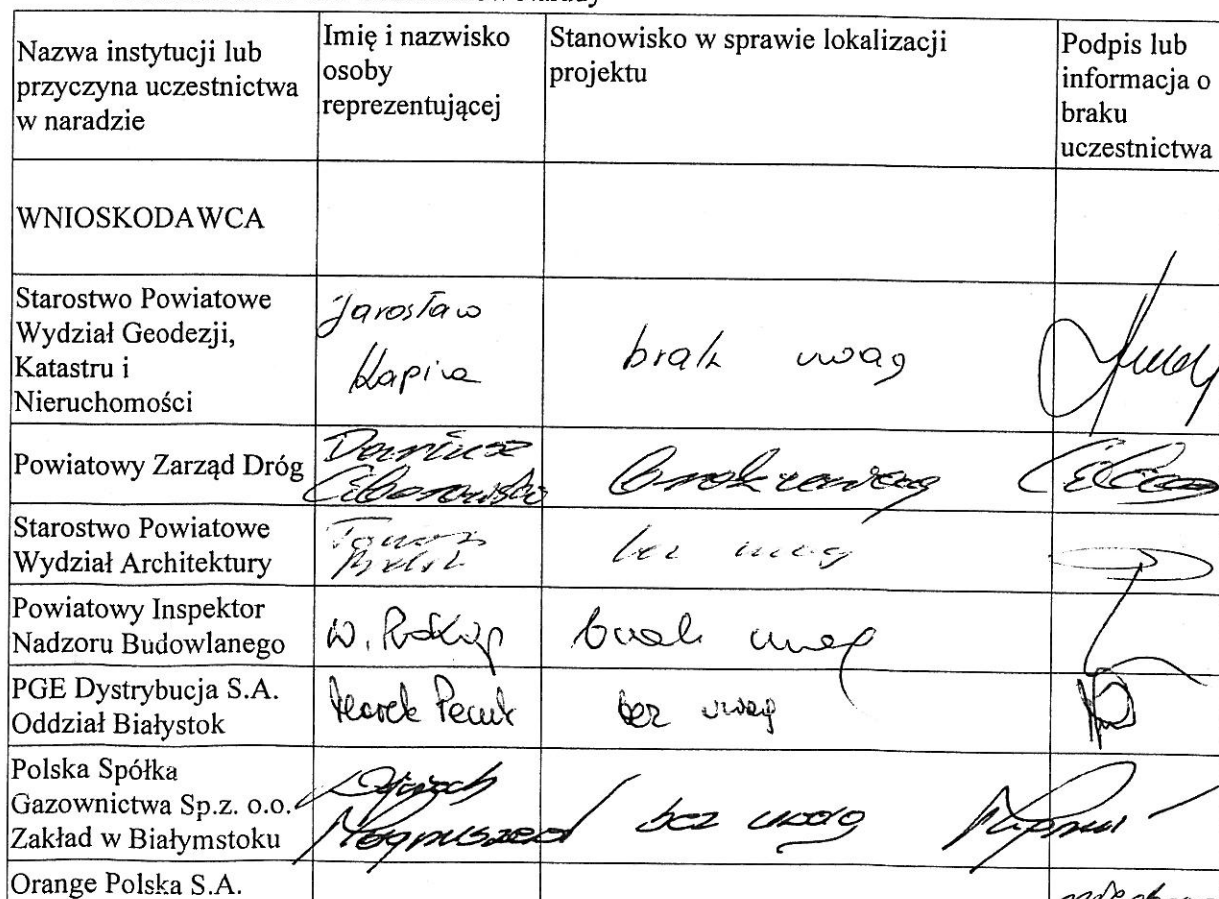 Nazwa instytucji lub
przyczyna uczestnictwa
w naradzie
Imię i nazwisko
osoby
reprezentującej
Stanowisko w sprawie lokalizacji
projektu
Podpis lub
informacja o
braku
uczestnictwa
WNIOSKODAWCA
Starostwo Powiatowe
Wydział Geodezji,
Katastru i
Nieruchomości
Jarosław
brak uwag
Powiatowy Zarząd Dróg
Dariusz
brak uwag
Starostwo Powiatowe
Wydział Architektury
bez uwag
Powiatowy Inspektor
Nadzoru Budowlanego
W. Prokop
brak uwag
PGE Dystrybucja S.A.
Oddział Białystok
Marek
bez uwag
Polska Spółka
Gazownictwa Sp.z. o.o.
Zakład w Białymstoku
bez uwag
Orange Polska S.A.